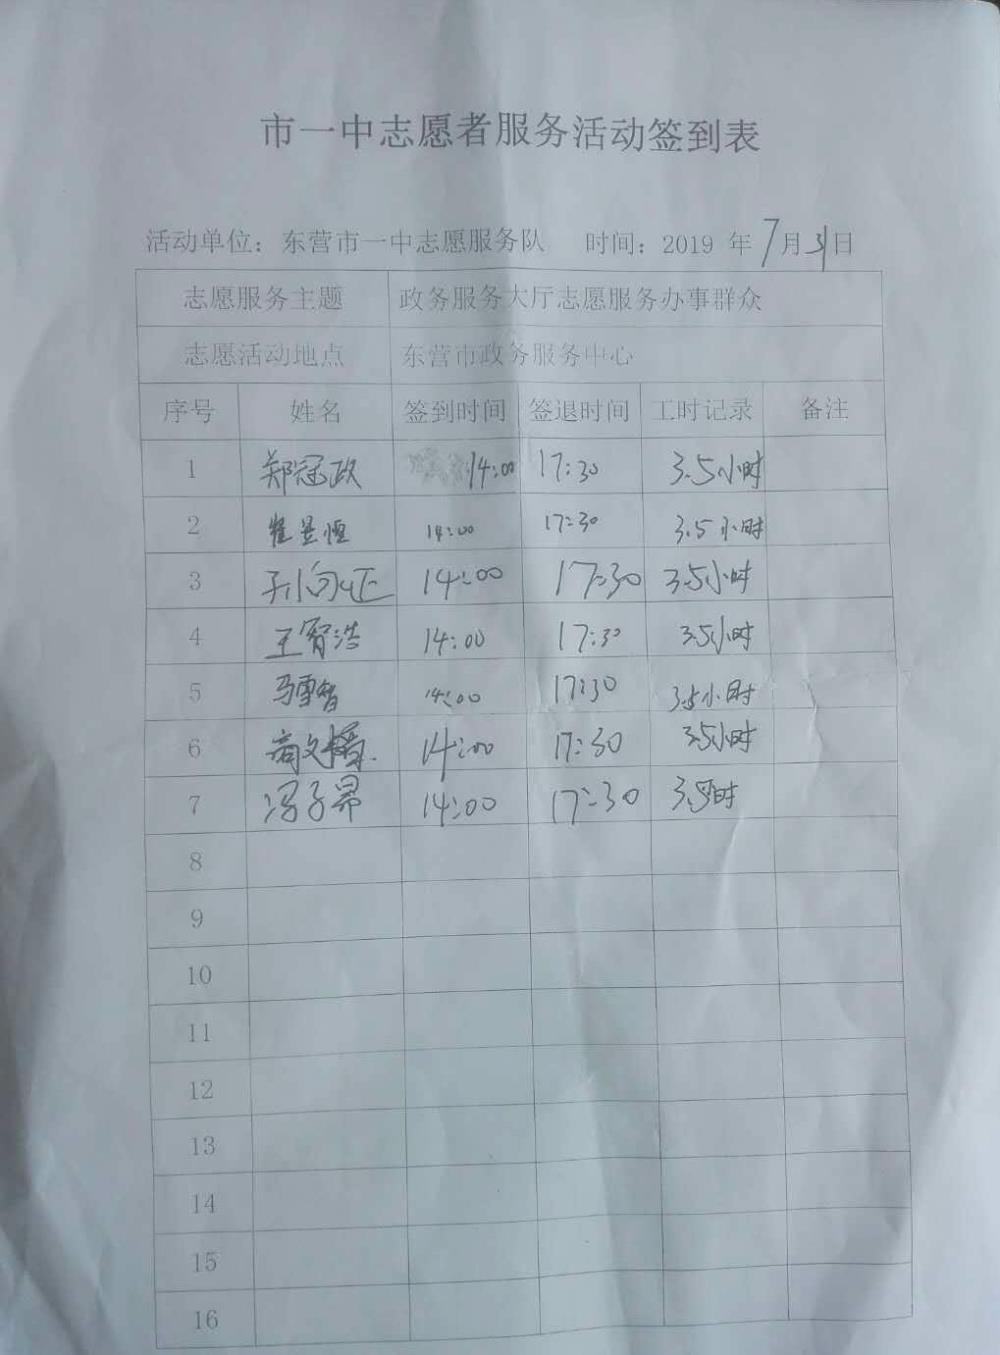 市一中志愿者服务活动签到表
活动单位：东营市一中志愿服务队 时间：2019 年 7月31日
志愿服务主题 政务服务大厅志愿服务办事群众
志愿活动地点 东营市政务服务中心
序号 姓名 签到时间 签退时间 工时记录 备注
1 郑冠政 14:00 17:30 3.5小时
2 崔昱恒 14:00 17:30 3.5小时
3 孙向正 14:00 17:30 3.5小时
4 王智浩 14:00 17:30 3.5小时
5 马雪智 14:00 17:30 3.5小时
6 14:00 17:30 3.5小时
7 冯子昂 14:00 17:30 3.5小时
8
9
10
11
12
13
14
15
16